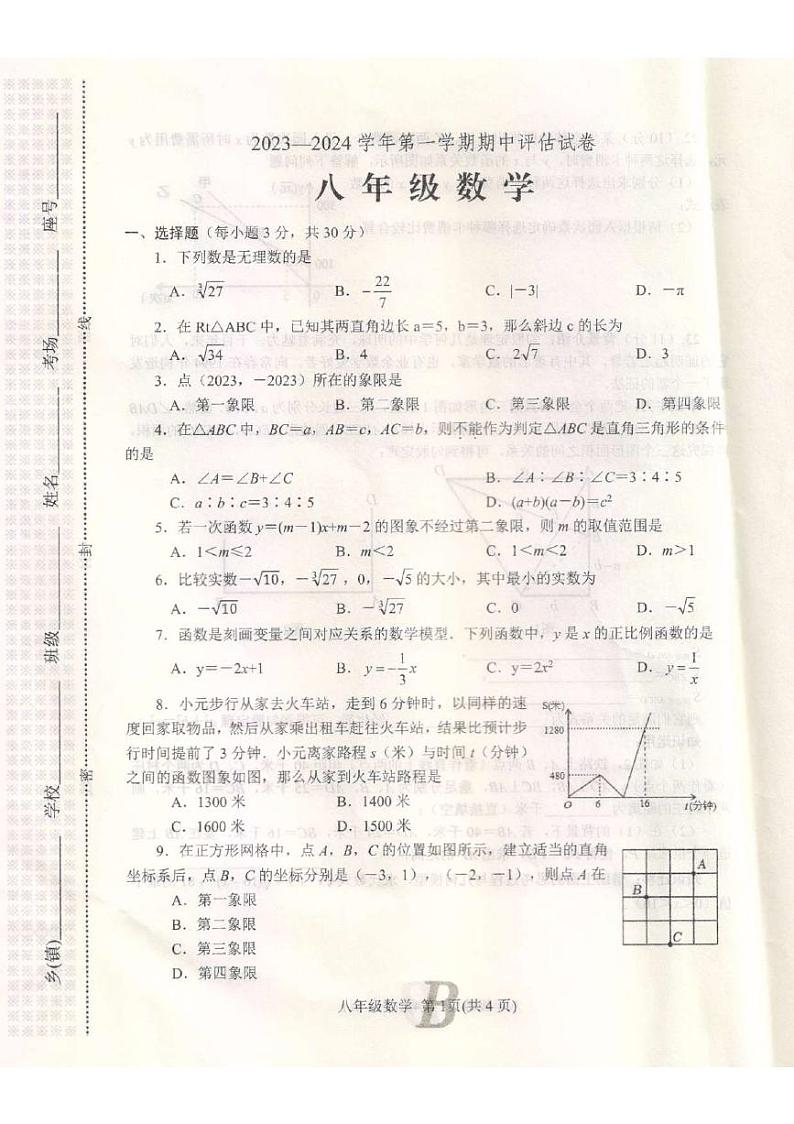 2023—2024 学年第一学期期中评估试卷
八年级数学
一、选择题（每小题 3 分，共 30 分）
1．下列数是无理数的是
A．∛27 B．−22/7 C．|−3| D．−π
2．在 Rt△ABC 中，已知其两直角边长 a＝5，b＝3，那么斜边 c 的长为
A．√34 B．4 C．2√7 D．3
3．点（2023，－2023）所在的象限是
A．第一象限 B．第二象限 C．第三象限 D．第四象限
4．在△ABC 中，BC＝a，AB＝c，AC＝b，则不能作为判定△ABC 是直角三角形的条件
的是
A．∠A＝∠B+∠C B．∠A∶∠B∶∠C＝3∶4∶5
C．a∶b∶c＝3∶4∶5 D．(a+b)(a－b)＝c²
5．若一次函数 y＝(m－1)x+m－2 的图象不经过第二象限，则 m 的取值范围是
A．1＜m≤2 B．m＜2 C．1＜m＜2 D．m＞1
6．比较实数−√10，−∛27，0，−√5 的大小，其中最小的实数为
A．−√10 B．−∛27 C．0 D．−√5
7．函数是刻画变量之间对应关系的数学模型．下列函数中，y 是 x 的正比例函数的是
A．y＝－2x+1 B．y＝−1/3 x C．y＝2x² D．y＝1/x
8．小元步行从家去火车站，走到 6 分钟时，以同样的速
度回家取物品，然后从家乘出租车赶往火车站，结果比预计步
行时间提前了 3 分钟．小元离家路程 s（米）与时间 t（分钟）
之间的函数图象如图，那么从家到火车站路程是
A．1300 米 B．1400 米
C．1600 米 D．1500 米
S(米)
1280
480
O 6 16 t(分钟)
9．在正方形网格中，点 A，B，C 的位置如图所示，建立适当的直角
坐标系后，点 B，C 的坐标分别是（－3，1），（－2，－1），则点 A 在
A．第一象限
B．第二象限
C．第三象限
D．第四象限
A
B
C
八年级数学 第 1页(共 4 页)
B
乡(镇) 学校 班级 姓名 考场 座号
密 封 线